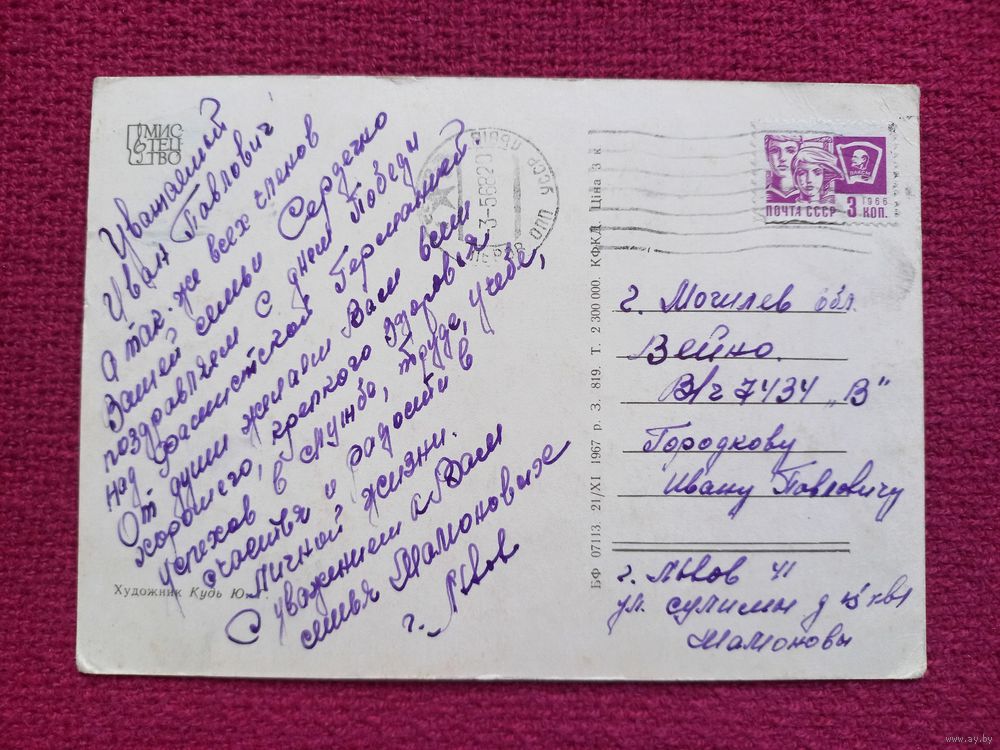 МИС
ТЕЦ
ТВО
Уважаемый
Иван Павлович
а так же всех членов
Вашей семьи Сердечно
поздравляем с днем Победы
над фашистской Германией
От души желаем Вам всем
хорошего, крепкого здоровья
успехов в службе, труде, учебе,
счастья и радости в
личной жизни.
С уважением к Вам
семья Мамоновых
г. Львов
Художник Кудь Ю.
БФ 07113 21/XI 1967 р. З. 819. Т. 2 300 000. КФКД Ціна 3 к
ПОЧТА СССР 3 КОП.
1966
ВЛКСМ
УССР
г. Могилев обл.
Вейно.
В/ч 7434 „В"
Городкову
Ивану Павловичу
г. Львов 41
ул. сулимы д 5 кв1
Мамоновы
www.ay.by